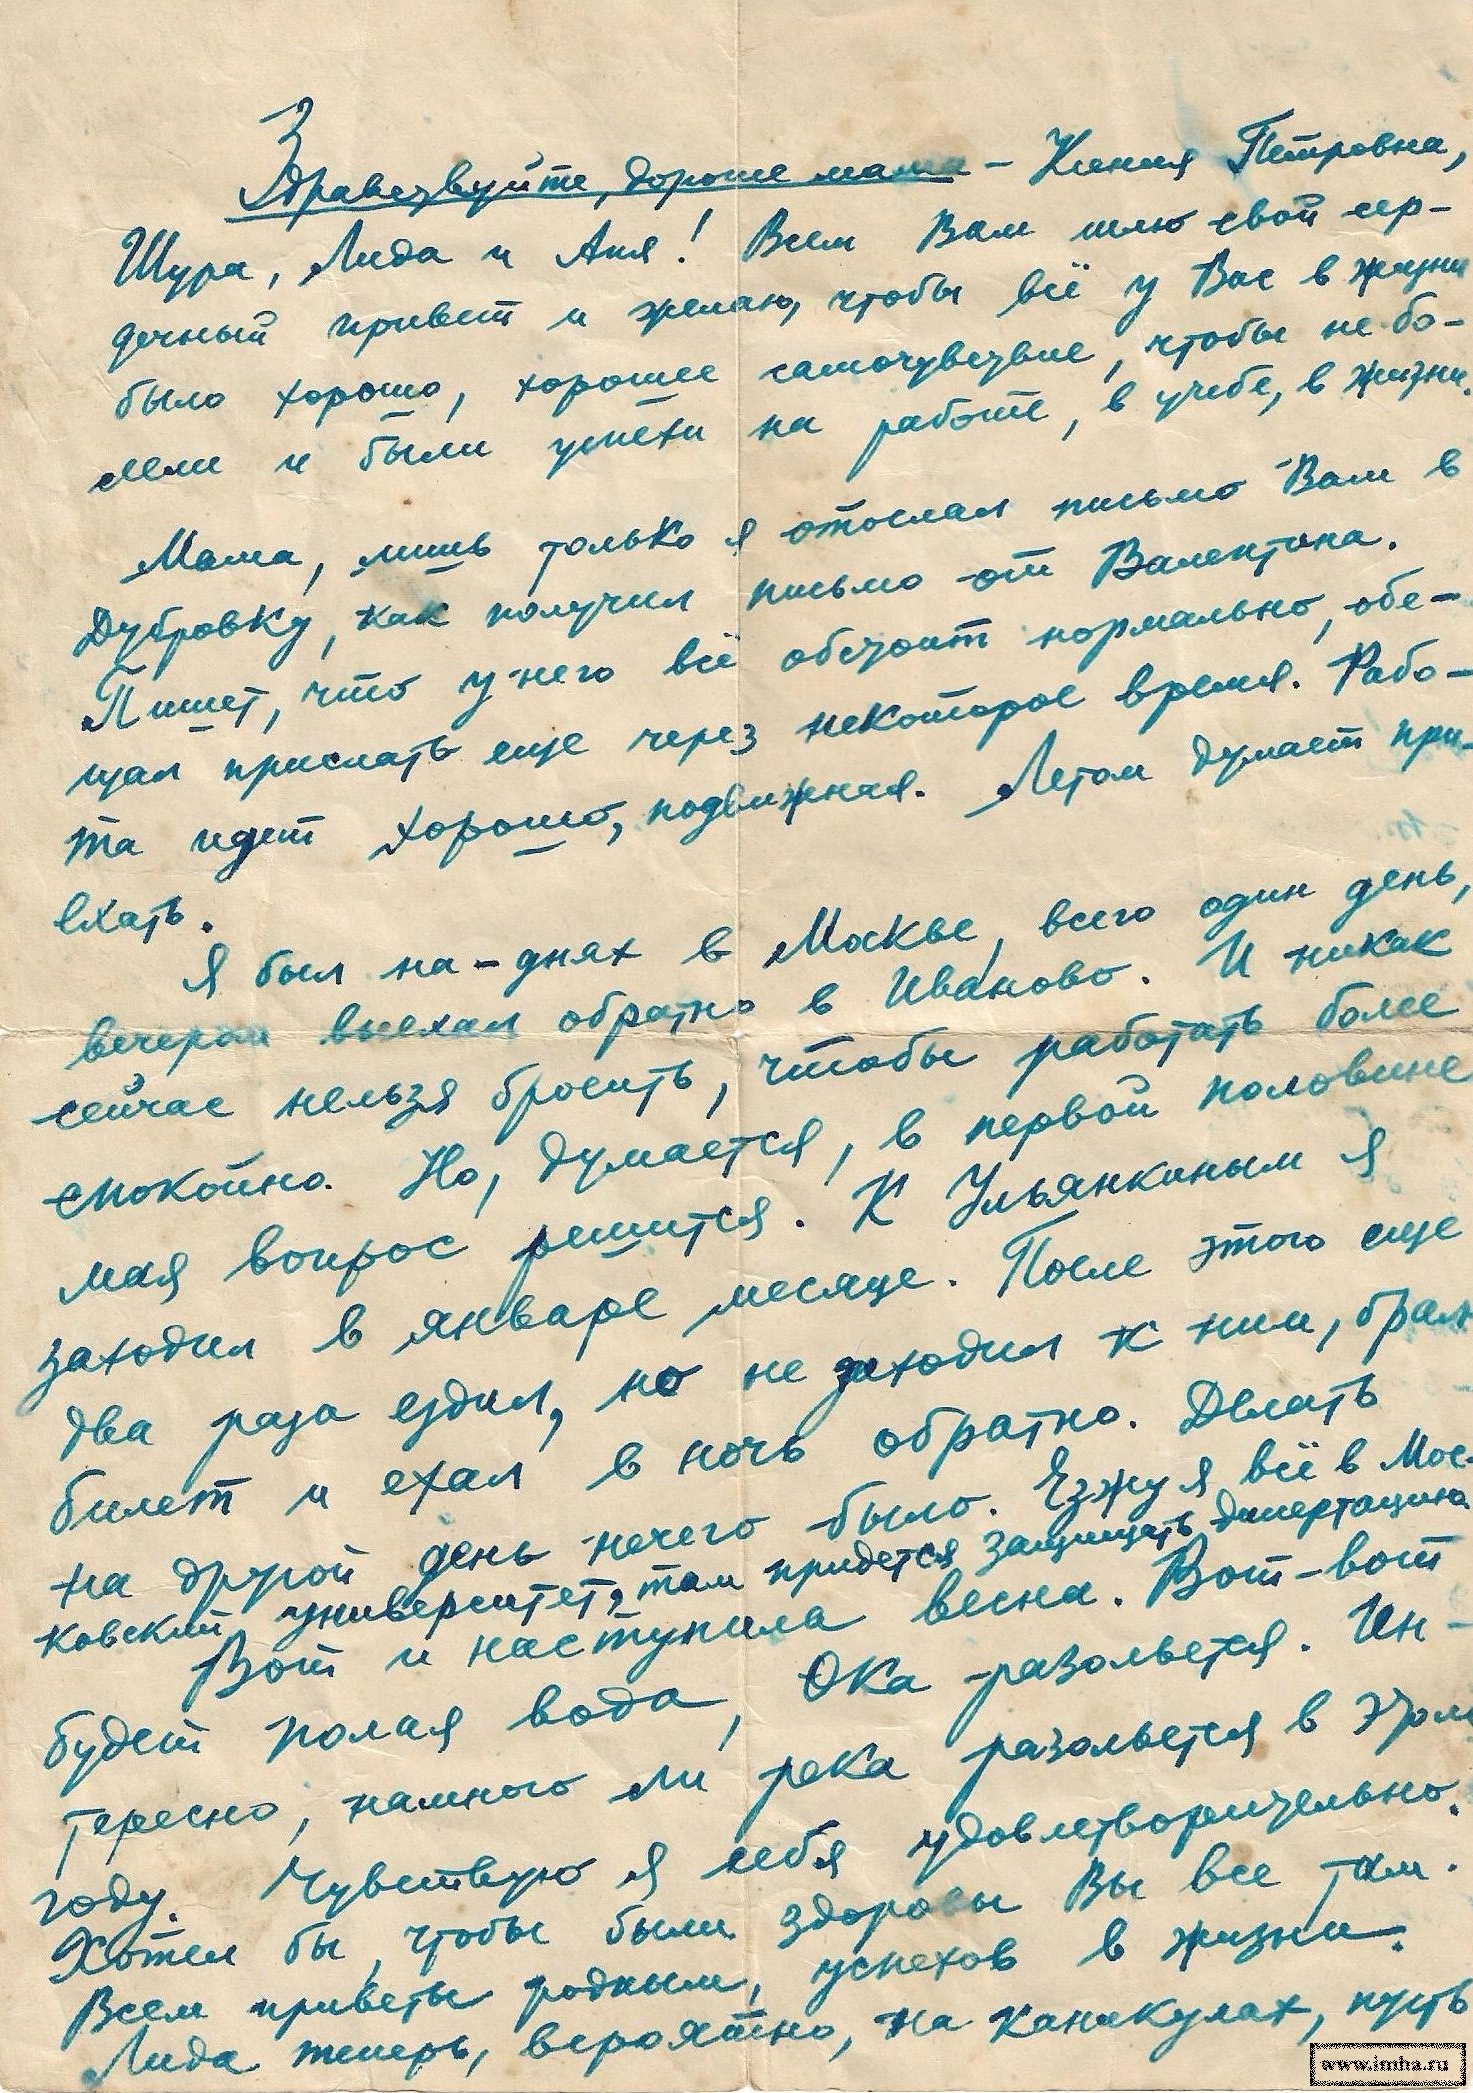 Здравствуйте, дорогие мама – Ксения Петровна,
Шура, Лида и Аня! Всем Вам шлю свой сер-
дечный привет и желаю, чтобы всё у Вас в жизни
было хорошо, хорошее самочувствие, чтобы не бо-
лели и были успехи на работе, в учебе, в жизни.
Мама, лишь только я отослал письмо Вам в
Дубровку, как получил письмо от Валентина.
Пишет, что у него всё обстоит нормально, обе-
щал прислать еще через некоторое время. Рабо-
та идет хорошо, подвижная. Летом думает при-
ехать.
Я был на-днях в Москве, всего один день,
вечером выехал обратно в Иваново. И никак
сейчас нельзя бросить, чтобы работать более
спокойно. Но, думается, в первой половине
мая вопрос решится. К Ульянкиным я
заходил в январе месяце. После этого еще
два раза ездил, но не заходил к ним, брал
билет и ехал в ночь обратно. Делать
на другой день нечего было. Езжу я всё в Мос-
ковский университет, там придется защищать диссертацию.
Вот и наступила весна. Вот-вот
будет полая вода, Ока разольется. Ин-
тересно, намного ли река разольется в этом
году. Чувствую я себя удовлетворительно.
Хотел бы, чтобы были здоровы Вы все там.
Всем приветы родным, успехов в жизни.
Лида теперь, вероятно, на каникулах, пусть
www.imha.ru